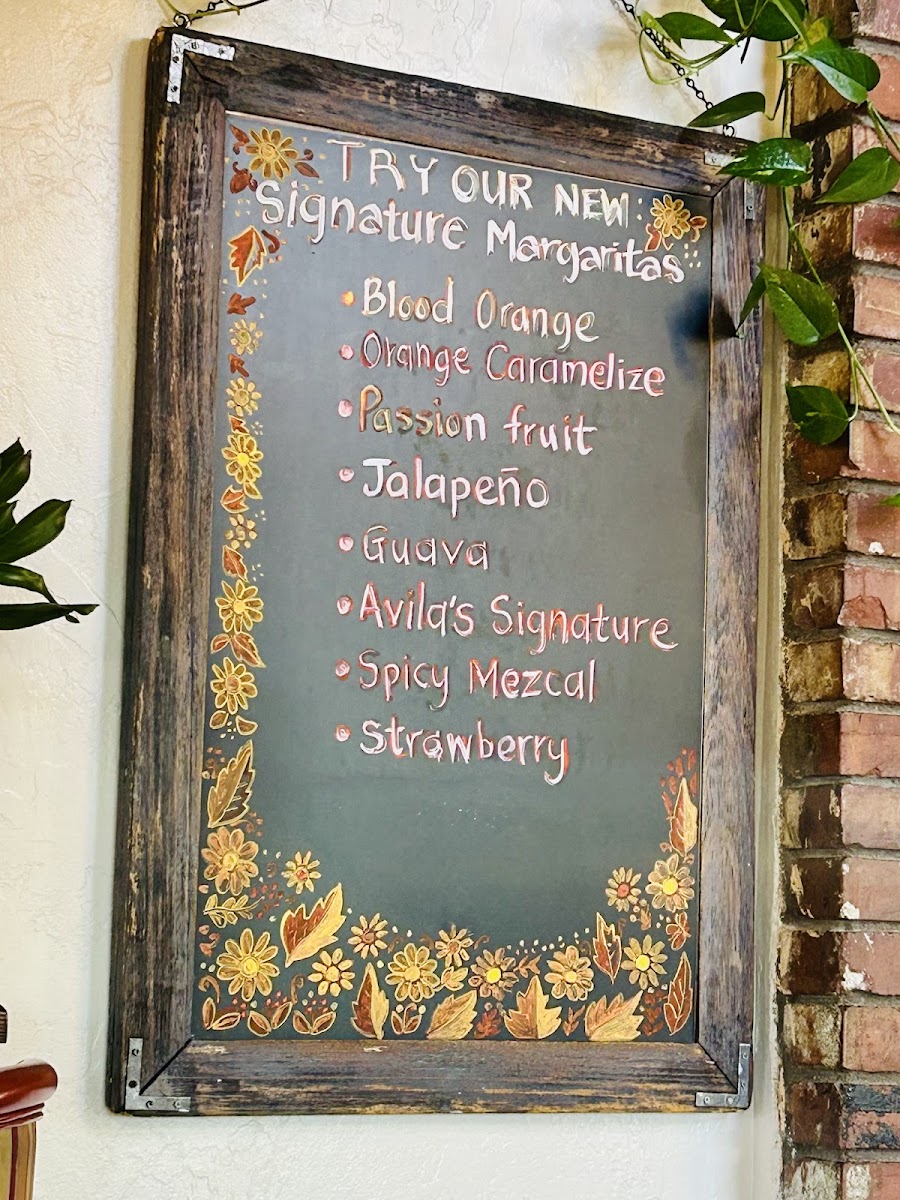 TRY OUR NEW:
Signature Margaritas
• Blood Orange
• Orange Caramelize
• Passion fruit
• Jalapeño
• Guava
• Avila's Signature
• Spicy Mezcal
• Strawberry